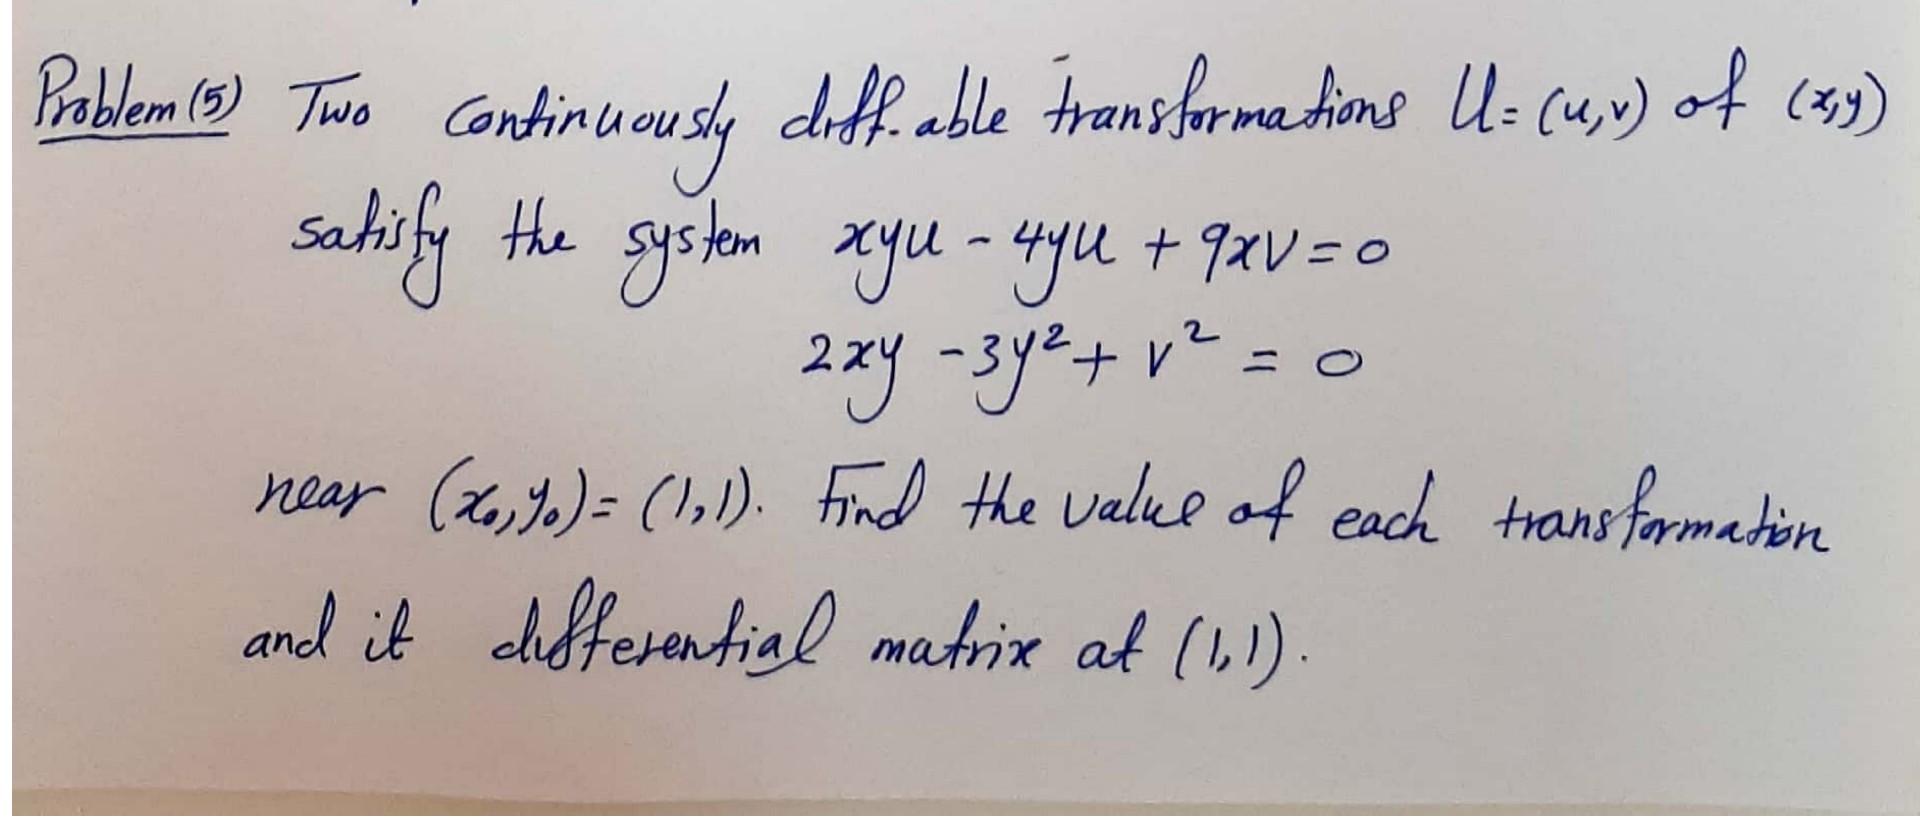 Problem (5) Two continuously diff.able transformations U=(u,v) of (x,y)
satisfy the system xyu - 4yu + 9xv = 0
2xy - 3y² + v² = 0
near (x₀,y₀) = (1,1). Find the value of each transformation
and it differential matrix at (1,1).